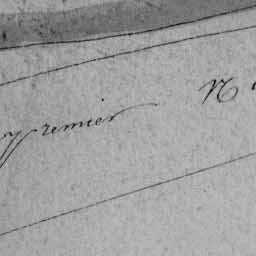 premier N